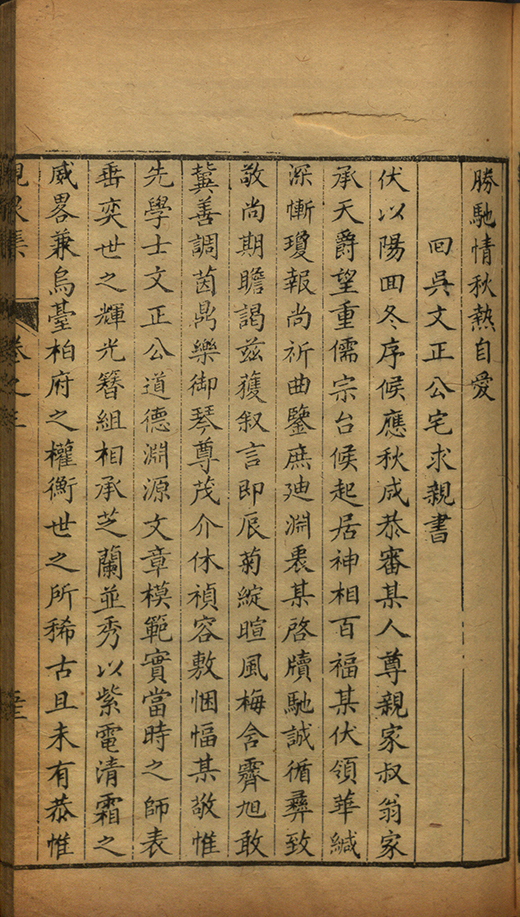 勝馳情秋熱自愛
回吳文正公宅求親書
伏以陽囬冬序候應秋成恭審某人尊親家叔翁家
承天爵望重儒宗台候起居神相百福某伏領華緘
深慚瓊報尚祈曲鑒庶廸淵裏某啓牘馳誠循彝致
敬尚期瞻謁兹獲叙言即辰菊綻暄風梅含霽旭敢
冀善調茵鼎樂御琴尊茂介休禎容敷悃愊某敬惟
先學士文正公道德淵源文章模範實當時之師表
奕世之輝光簪組相承芝蘭並秀以紫電清霜之
威畧兼烏䑓柏府之權衡世之所稀古且未有恭惟
集 卷之